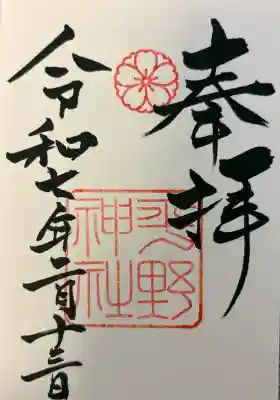 奉拝
野
神社
令和七年二月十三日